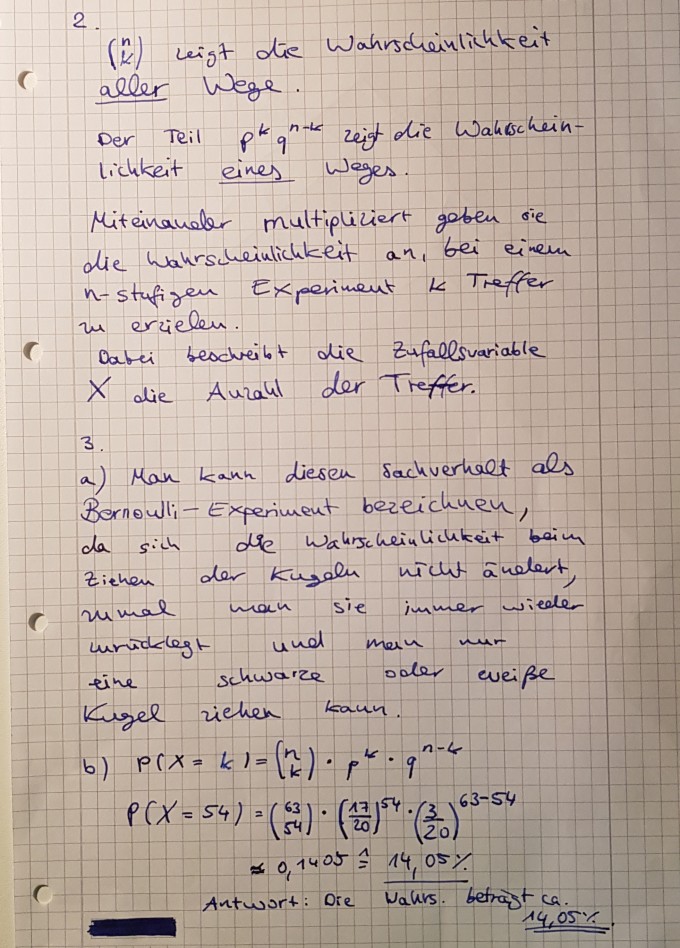 2.
(n k) zeigt die Wahrscheinlichkeit
aller Wege.
Der Teil p^k q^n-k zeigt die Wahrschein-
lichkeit eines Weges.
Miteinander multipliziert geben sie
die Wahrscheinlichkeit an, bei einem
n-stufigen Experiment k Treffer
zu erzielen.
Dabei beschreibt die Zufallsvariable
X die Anzahl der Treffer.
3.
a) Man kann diesen Sachverhalt als
Bernoulli-Experiment bezeichnen,
da sich die Wahrscheinlichkeit beim
Ziehen der Kugeln nicht ändert,
zumal man sie immer wieder
zurücklegt und man nur
eine schwarze oder weiße
Kugel ziehen kann.
b) P(X = k) = (n k) · p^k · q^n-k
P(X = 54) = (63 54) · (17/20)^54 · (3/20)^63-54
≈ 0,1405 ≙ 14,05%
Antwort: Die Wahrs. beträgt ca.
14,05%.